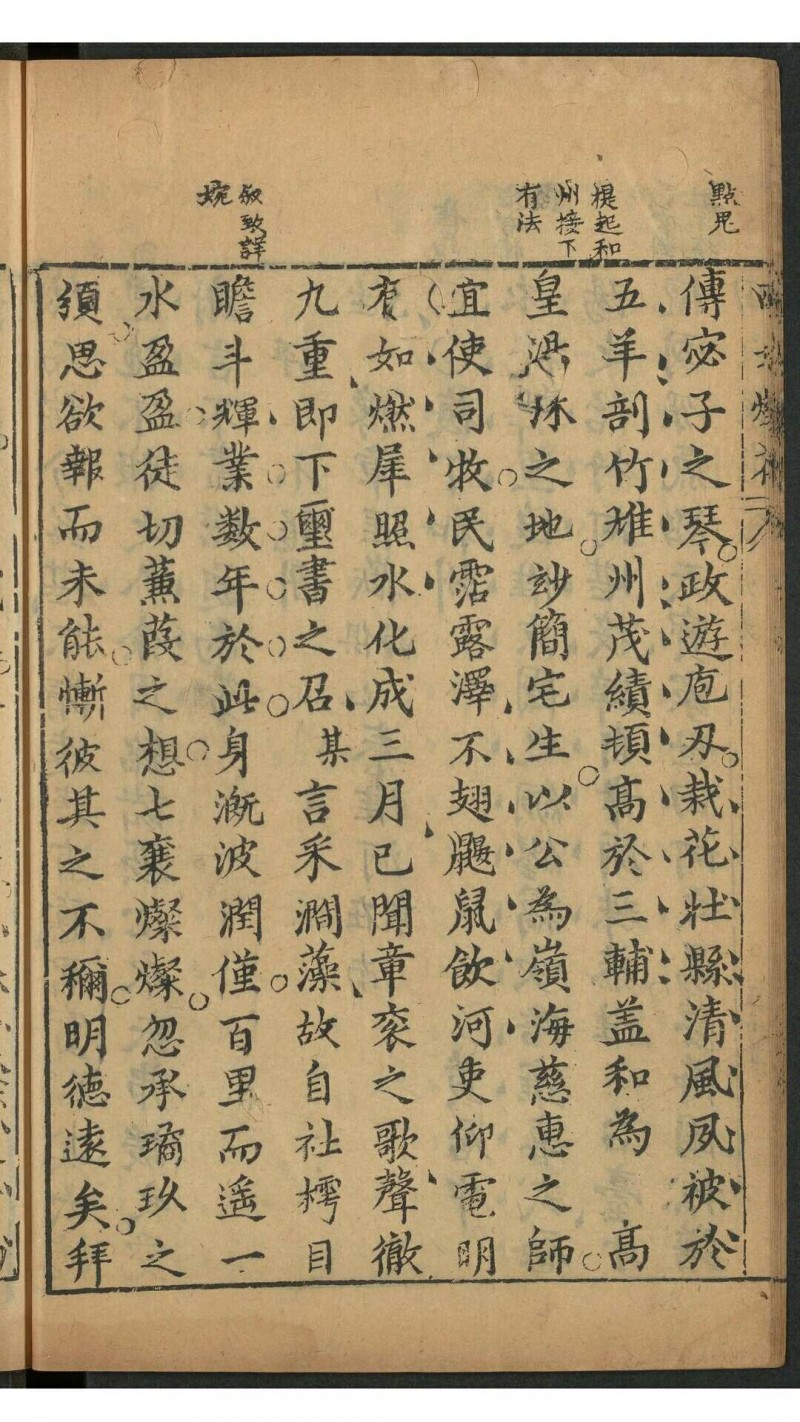 點兇
提起和
州接下
有法
叙致詳
婉
傳宓子之琴政遊庖刃栽花壯縣清風夙被於
五羊剖竹雄州茂績頓高於三輔盖和為　高
皇　之地玅簡宅生以公為嶺海慈惠之師
宜使司牧民霑露澤不翅鼴鼠飲河吏仰電明
有如燃犀照水化成三月已聞章衮之歌聲徹
九重即下璽書之召某言采澗藻故自社樗目
瞻斗輝業数年於此身漑波潤僅百里而遥一
水盈盈徒切蒹葭之想七襄燦燦忽承璚玖之
須思欲報而未能慚彼其之不穪明德遠矣拜